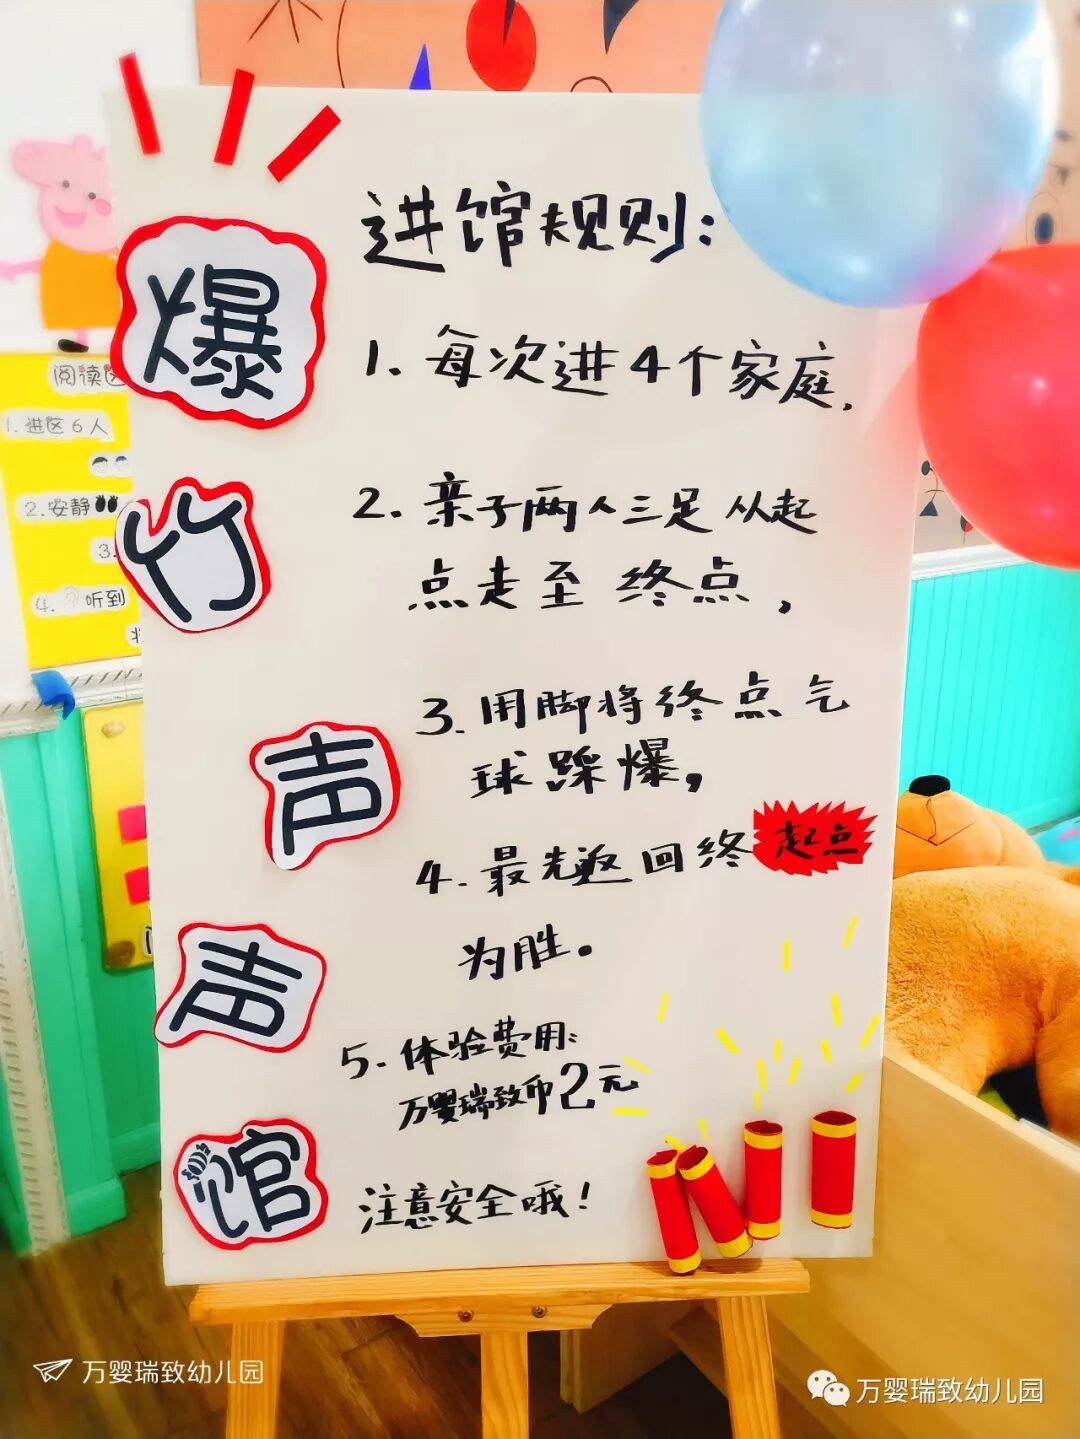 爆竹声声馆
进馆规则:
1. 每次进4个家庭.
2. 亲子两人三足从起
点走至终点,
3. 用脚将终点气
球踩爆,
4. 最先返回终起点
为胜。
5. 体验费用:
万婴瑞致币2元
注意安全哦!
阅读区
1.进区6人
2.安静
3.
4. 听到
万婴瑞致幼儿园
万婴瑞致幼儿园